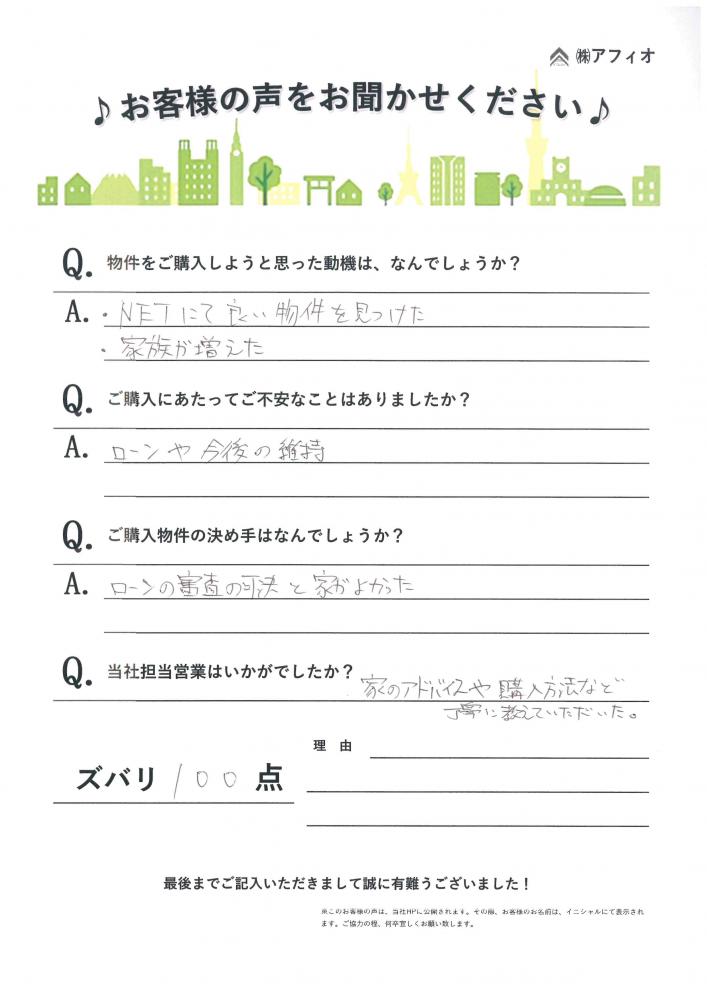 ㈱アフィオ
♪お客様の声をお聞かせください♪
Q. 物件をご購入しようと思った動機は、なんでしょうか？
A. ・NETにて良い物件を見つけた
・家族が増えた
Q. ご購入にあたってご不安なことはありましたか？
A. ローンや今後の維持
Q. ご購入物件の決め手はなんでしょうか？
A. ローンの審査の可決と家がよかった
Q. 当社担当営業はいかがでしたか？
家のアドバイスや購入方法など
丁寧に教えていただいた。
理 由
ズバリ 100 点
最後までご記入いただきまして誠に有難うございました！
※このお客様の声は、当社HPに公開されます。その際、お客様のお名前は、イニシャルにて表示され
ます。ご協力の程、何卒宜しくお願い致します。